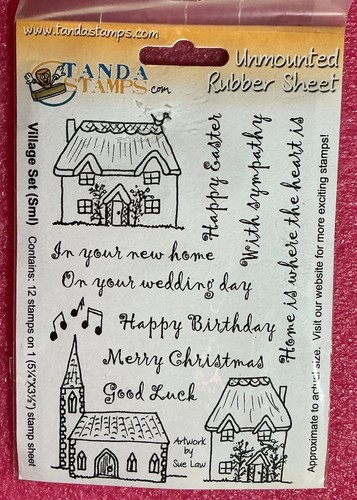 www.tandastamps.com
TANDA
STAMPS.com
Unmounted
Rubber Sheet
Village Set (Sml) Contains: 12 stamps on 1 (5¼"X3½") stamp sheet
Happy Easter
With sympathy
Home is where the heart is
Approximate to actual size. Visit our website for more exciting stamps!
In your new home
On your wedding day
Happy Birthday
Merry Christmas
Good Luck
Artwork
by
Sue Law